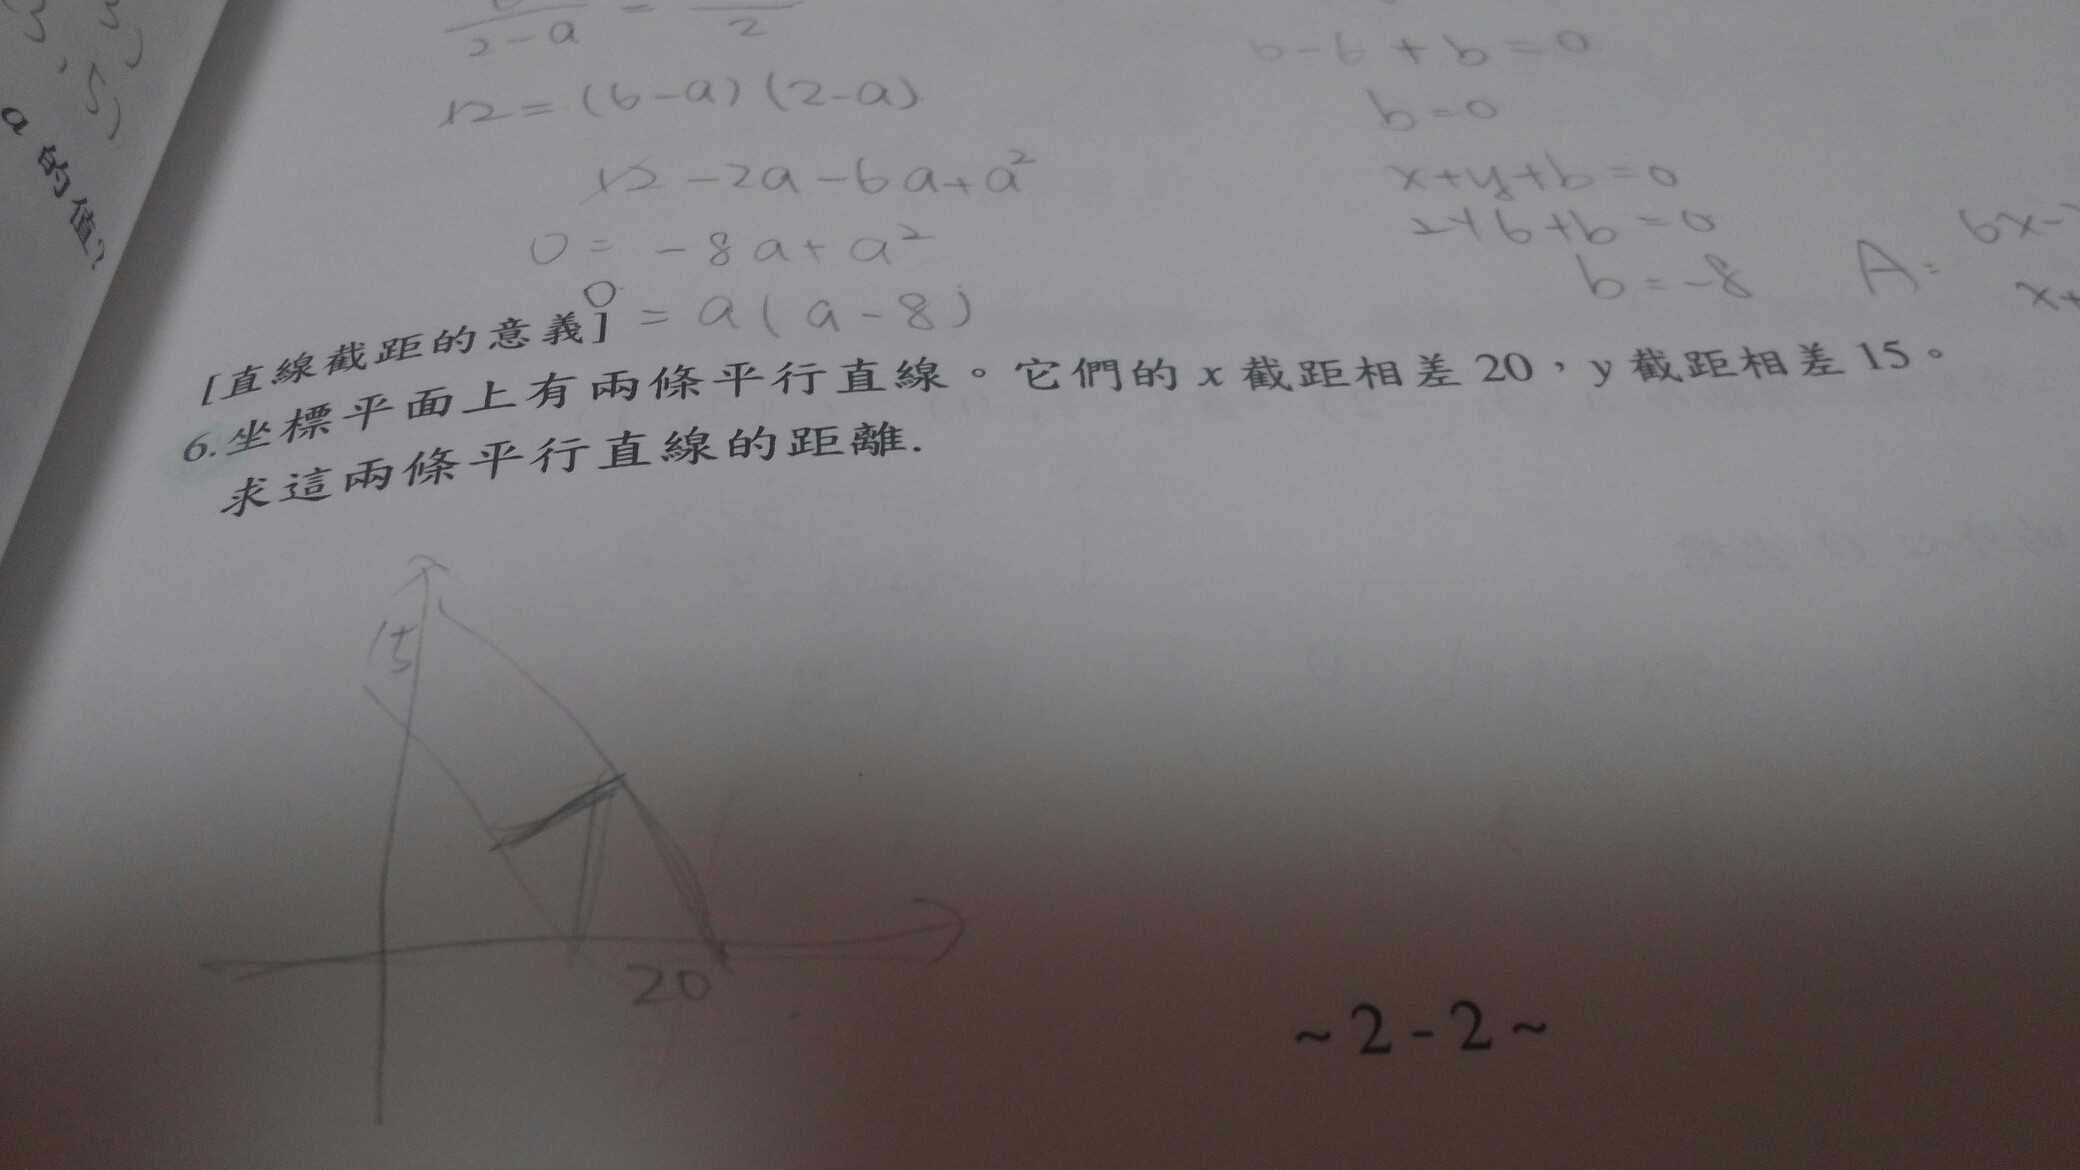 a 的值?
5)
2-a = 2
12 = (6-a)(2-a)
12-2a-6a+a²
0 = -8a+a²
0 = a(a-8)
6-6+b=0
b=0
x+y+b=0
2+6+b=0
b=-8
A=
6x-
x+
[直線截距的意義]
6.坐標平面上有兩條平行直線。它們的 x 截距相差 20，y 截距相差 15。
求這兩條平行直線的距離.
15
20
~2-2~